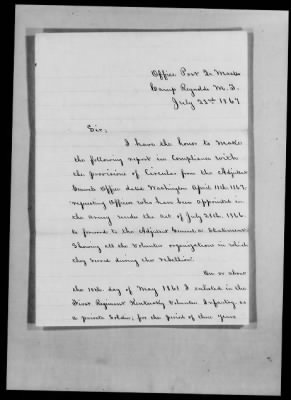 Office Post Qr Master
Camp Reynolds M. T.
July 23rd 1867
Sir:
I have the honor to make
the following report in compliance with
the provisions of Circular from the Adjutant
Generals Office dated Washington April 11th 1867,
requesting Officers who have been appointed in
the Army under the Act of July 28th, 1866,
to forward to the Adjutant General a Statement
Showing all the Volunteer organizations in which
they served during the rebellion.
On or about
the 10th day of May 1861 I enlisted in the
First Regiment Kentucky Volunteer Infantry, as
a private Soldier, for the period of three years